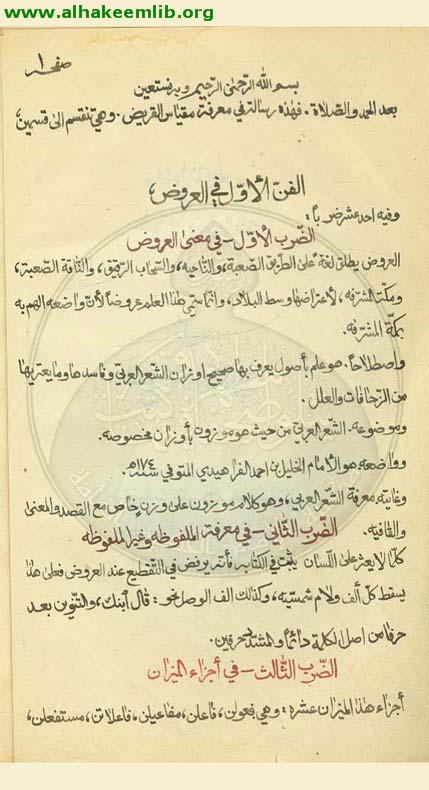 www.alhakeemlib.org
صفحہ ١
بسم الله الرحمن الرحيم وبه نستعين
بعد الحمد والصّلاة، فهٰذه رسالة في معرفة مقياس القريض. وهي تنقسم الى قسمين؛
الفنّ الاوّل في العروض،
وفيه احد عشر ضرباً:
الضّرب الاوّل - في معنى العروض
العروض يطلق لغة على الطّريق الصّعبة، والنّاحيه، والسّحاب الرّقيق، والنّاقة الصّعبة،
ومكّة المشرّفه، لأعتراضها وسط البلاد، وانّما سمّي هٰذا العلم عروضاً لأنّ واضعه الهم به
بمكّة المشرّفه.
واصطلاحاً: هو علم بأصول يعرف بها صحيح اوزان الشّعر العربيّ وفاسدها وما يعتريها
من الزّحافات والعلل.
وموضوعه. الشّعر العربيّ من حيث هو موزون بأوزان مخصوصه.
وواضعه هو الأمام الخليل بن احمد الفراهيدي المتوفي سنة ١٧٤ ه.
وغايته معرفة الشّعر العربي، وهو كلام موزون على وزن خاص مع القصد والمعنى
والقافيه. الضّرب الثّاني - في معرفة الملفوظه وغير الملفوظه
كلّ ما لا يعثر على اللّسان يثبت في الكتابه فأنّه يرفض في التّقطيع عند العروض فعلى هٰذا
يسقط كلّ ألف ولام شمسيّه، وكذلك الف الوصل نحو: قال أبنك، والتّنوين بعد
حرفاً من اصل الكلمة دائماً والمشدّد بحرفين.
الضّرب الثّالث - في أجزاء الميزان
أجزاء هٰذا الميزان عشره: وهي فعولن، فاعلن، مفاعيلن، فاعلاتن، مستفعلن،